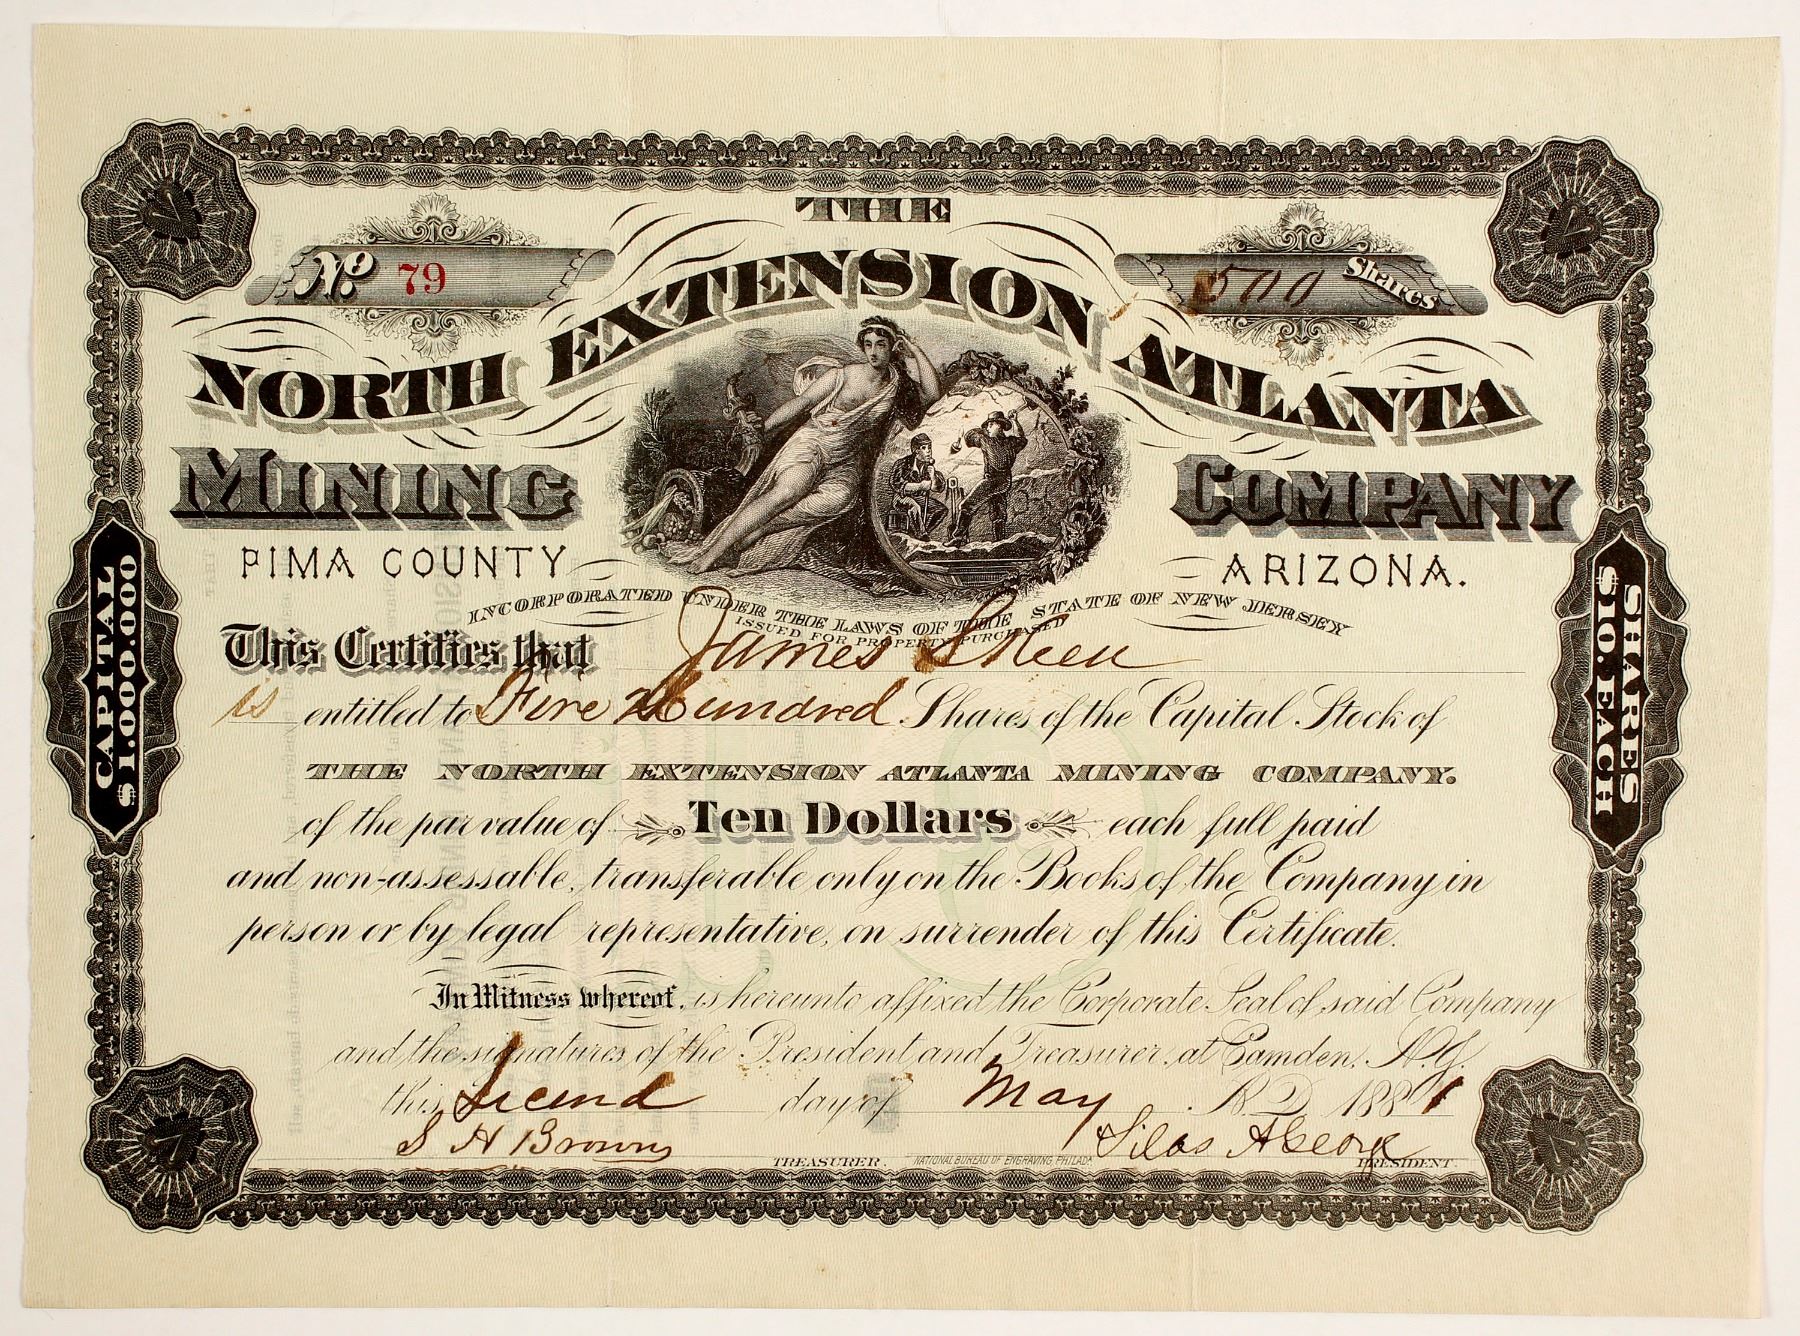 THE
No. 79
500 Shares
NORTH EXTENSION ATLANTA
MINING COMPANY
PIMA COUNTY ARIZONA.
INCORPORATED UNDER THE LAWS OF THE STATE OF NEW JERSEY
ISSUED FOR PROPERTY PURCHASED
This Certifies that James Skeen
is entitled to Five Hundred Shares of the Capital Stock of
THE NORTH EXTENSION ATLANTA MINING COMPANY.
of the par value of Ten Dollars each full paid
and non-assessable, transferable only on the Books of the Company in
person or by legal representative, on surrender of this Certificate.
In Witness whereof, is hereunto affixed the Corporate Seal of said Company
and the signatures of the President and Treasurer, at Camden, N.J.
this Second day of May A.D. 1881
S H Browns Silas A George
TREASURER. NATIONAL BUREAU OF ENGRAVING, PHILADA. PRESIDENT.
CAPITAL
$1.000.000
SHARES
$10. EACH